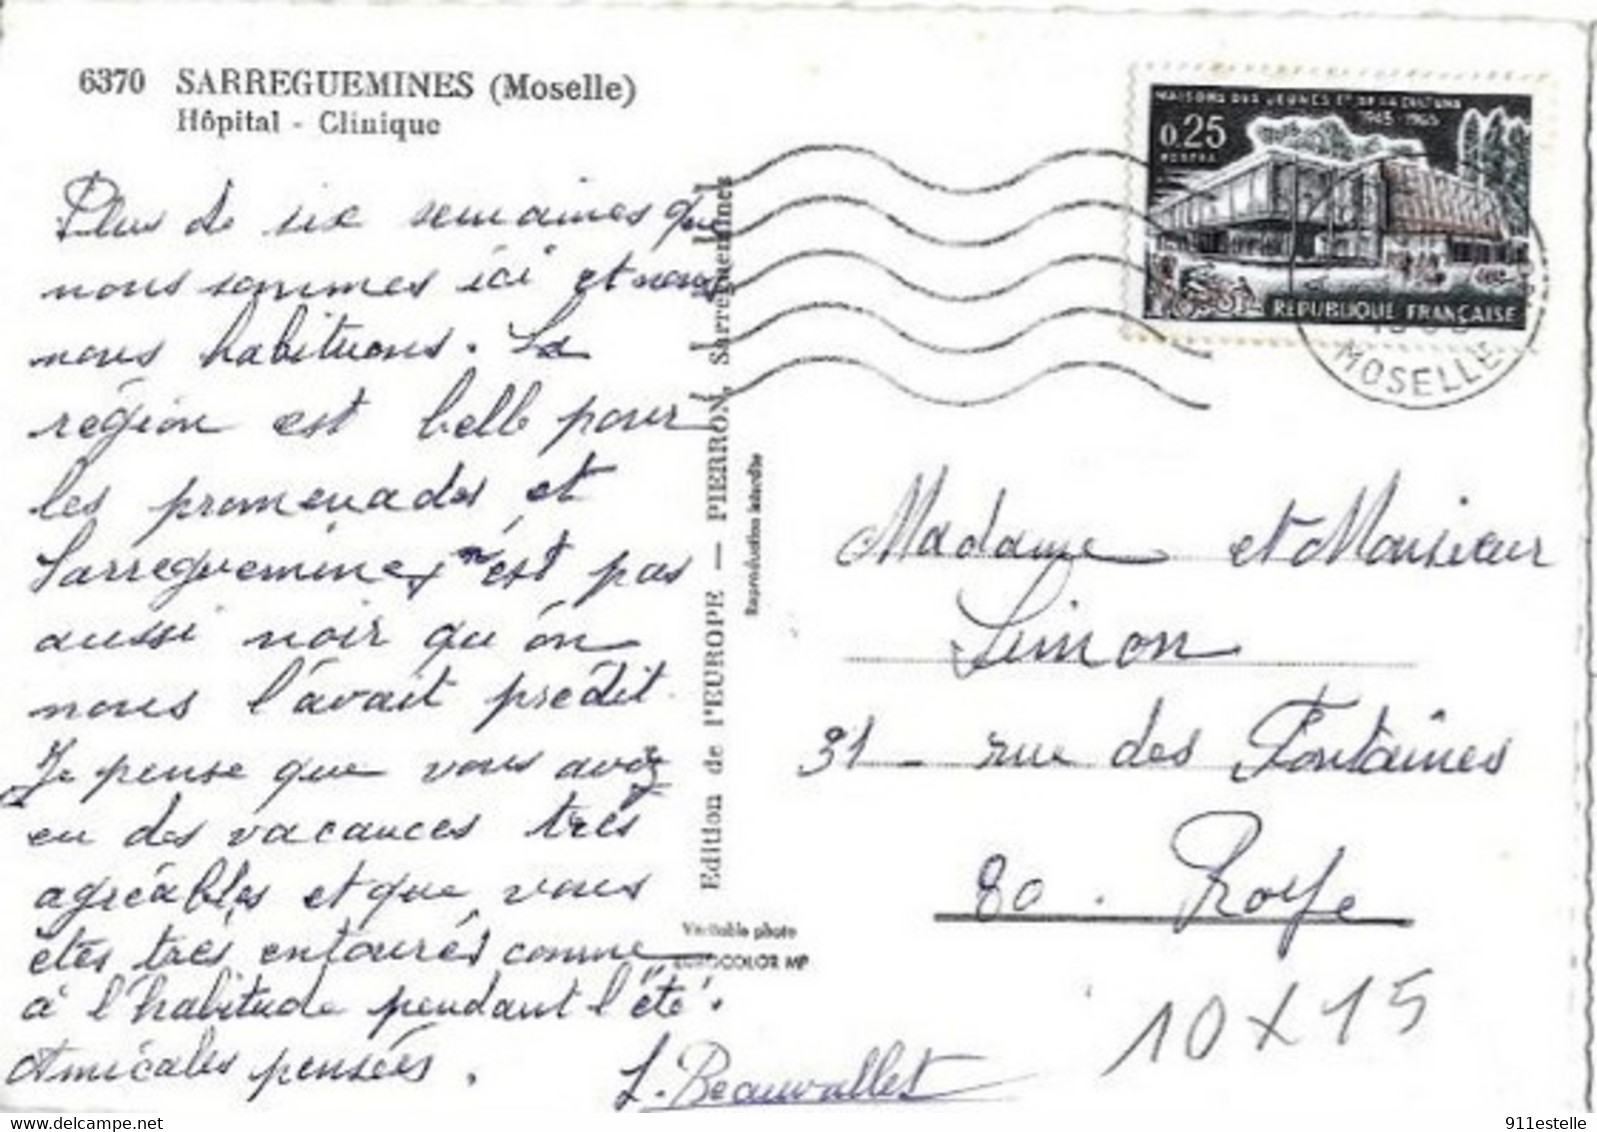 6370 SARREGUEMINES (Moselle)
Hôpital - Clinique
Plus de six semaines que
nous sommes ici et nous
nous habituons. La
région est belle pour
les promenades et
Sarreguemines n'est pas
aussi noir qu'on
nous l'avait prédit.
Je pense que vous avez
eu des vacances très
agréables et que vous
êtes très entourés comme
à l'habitude pendant l'été.
Amicales pensées.
J. Beauvallet
Edition de l'EUROPE — PIERRON, Sarreguemines
Reproduction interdite
Véritable photo
EUROCOLOR MP
MAISONS DES JEUNES ET DE LA CULTURE
1945 1965
0.25
POSTES
REPUBLIQUE FRANÇAISE
MOSELLE
Madame et Monsieur
Simon
31 - rue des Fontaines
80. Roye
10 x 15
https://www.delcampe.net
911estelle